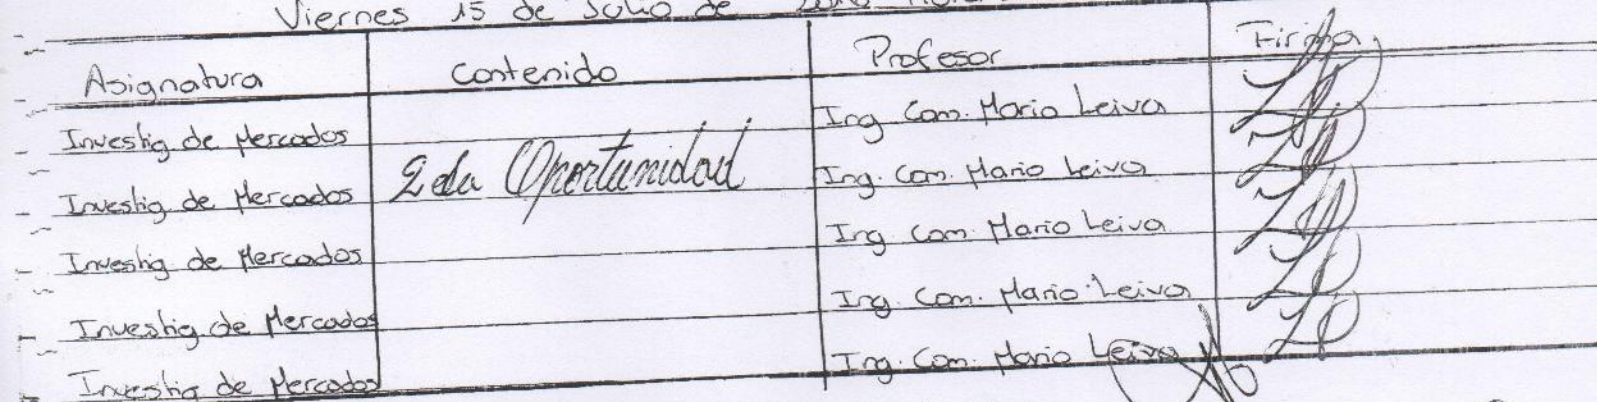 Viernes 15 de Julio de
Asignatura Contenido Profesor Firma
Investig de Mercados Ing Com. Mario Leiva
Investig de Mercados 2da Oportunidad Ing. Com. Mario Leiva
Investig de Mercados Ing Com. Mario Leiva
Investig de Mercados Ing. Com. Mario Leiva
Investig de Mercados Ing. Com. Mario Leiva